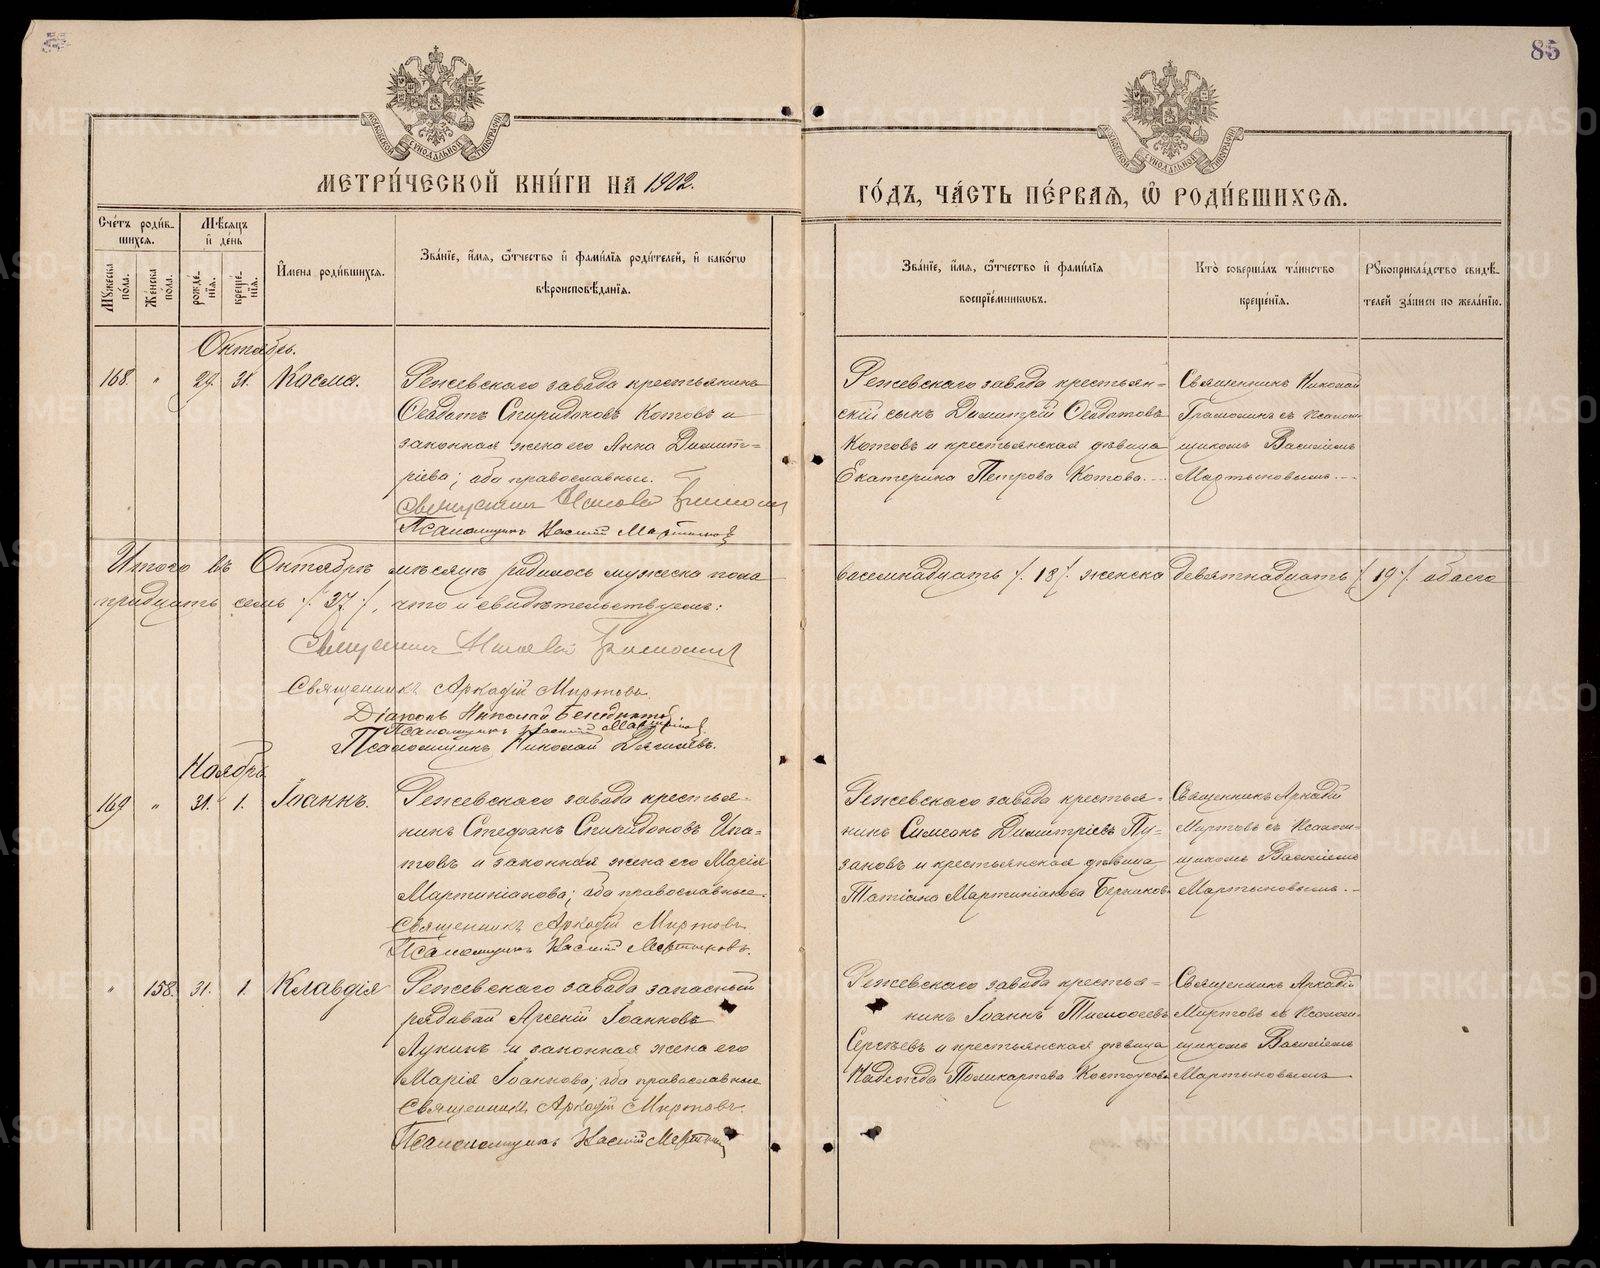 85
МЕТРИ́ЧЕСКОЙ КНИ́ГИ НА 1902.
ГО́ДЪ, ЧА́СТЬ ПЕ́РВАЯ, Ѽ РОДИ́ВШИХСЯ.
Сче́тъ роди́в-
шихся.
Мѣ́сяцъ
и҆ де́нь
Му́жеска по́ла.
Же́нска по́ла.
рожде́-
нїя.
креще́-
нїя.
И҆мена роди́вшихся.
Зва́нїе, и҆́мя, ѻ҆́тчество и҆ фами́лїя роди́телей, и҆ како́гѡ
вѣроисповѣ́данїя.
Зва́нїе, и҆́мя, ѻ҆́тчество и҆ фами́лїя
воспрїе́мникѡвъ.
Кто̀ соверша́лъ та́инство
креще́нїя.
Рꙋкоприкла́дство свидѣ́-
телей за́писи по жела́нїю.
Октябрь.
168. " 29. 31. Косма.
Режевскаго завода крестьянинъ
Ѳеодотъ Спиридоновъ Котовъ и
законная жена его Анна Димит-
ріева; оба православные.
Священникъ Николай
Псаломщикъ Василій Мартыновъ
Режевскаго завода крестьян-
скій сынъ Димитрій Ѳеодотовъ
Котовъ и крестьянская дѣвица
Екатерина Петрова Котова.
Священникъ Николай
съ псалом-
щикомъ Василіемъ
Мартыновымъ.
Итого въ Октябрѣ мѣсяцѣ родилось мужеска пола восемнадцать /18/. женска девятнадцать /19/ обоего
тридцать семь /37/, что и свидѣтельствуемъ:
Священникъ Николай
Священникъ Аркадій Миртовъ
Діаконъ Николай
Псаломщикъ Василій Мартыновъ
Псаломщикъ Николай
Ноябрь
169 " 31. 1. Іоаннъ.
Режевскаго завода крестья-
нинъ Стефанъ Спиридоновъ Ипа-
товъ и законная жена его Марія
Мартиніанова; оба православные.
Священникъ Аркадій Миртовъ
Псаломщикъ Василій Мартыновъ.
Режевскаго завода крестья-
нинъ Симеонъ Димитріевъ Пу-
зановъ и крестьянская дѣвица
Татіана Мартиніанова
Священникъ Аркадій
Миртовъ съ псалом-
щикомъ Василіемъ
Мартыновымъ.
" 158. 31. 1. Клавдія
Режевскаго завода запасный
рядовой Арсеній Іоанновъ
Лукинъ и законная жена его
Марія Іоаннова; оба православные
Священникъ Аркадій Миртовъ.
Псаломщикъ Василій Мартыновъ
Режевскаго завода крестья-
нинъ Іоаннъ Тимоѳеевъ
Сергѣевъ и крестьянская дѣвица
Надежда Поликарпова Костоусова
Священникъ Аркадій
Миртовъ съ псалом-
щикомъ Василіемъ
Мартыновымъ
METRIKI.GASO-URAL.RU